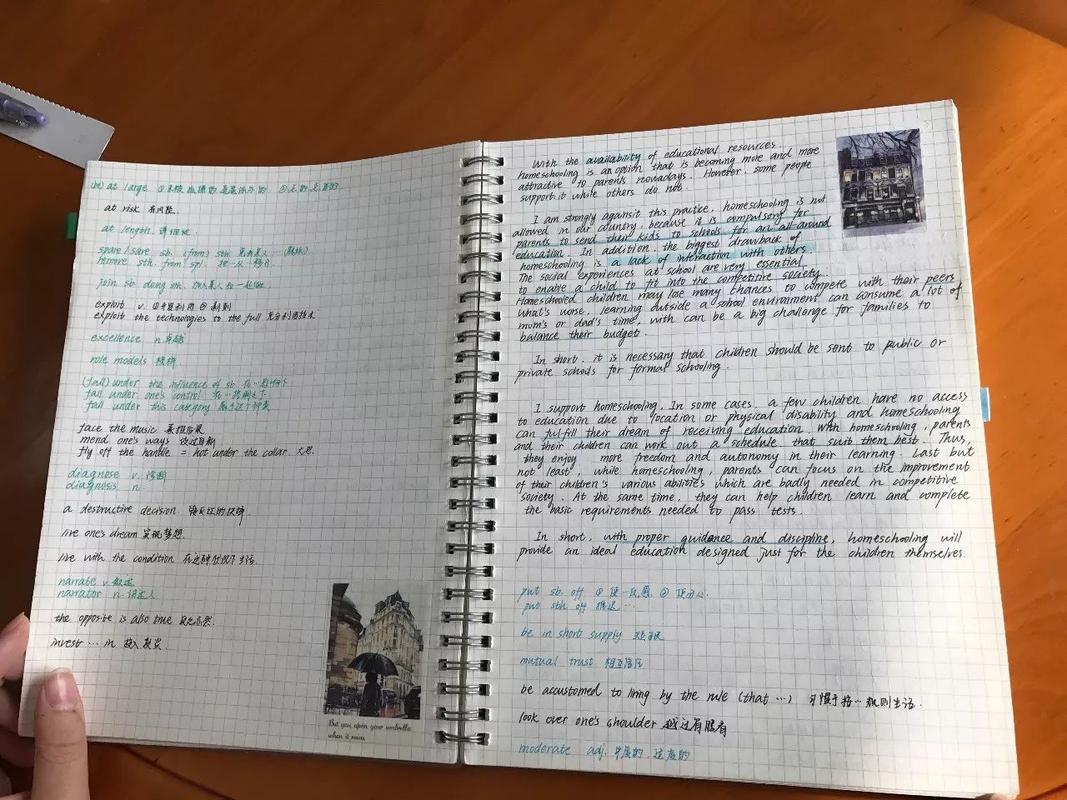 (be) at large
at risk 有风险.
at length. 详细地
spare / save sb. (from) sth.
remove sth. from spl.
join sb. doing sth. 加入某人
exploit v.
exploit the technologies to the full 充分利用技术
excellence n. 卓越
role models 榜样
(fall) under the influence of sb.
fall under one's control
fall under this category
face the music 承担后果
mend one's ways 改过自新
fly off the handle = hot under the collar 大怒.
diagnose v. 诊断
diagnosis n.
a destructive decision
live one's dream 实现梦想
live with the condition
narrate v. 叙述
narrator n. 讲述人
the opposite is also true 反之亦然.
invest ··· in
But you, open your umbrella
when it rains
With the availability of educational resources
homeschooling is an option that is becoming more and more
attractive to parents nowadays. However, some people
support it while others do not.
I am strongly agansit this practice. homeschooling is not
allowed in our country, because it is compulsory for
parents to send their kids to schools for an all-around
education. In addition, the biggest drawback of
homeschooling is a lack of interaction with others.
The social experiences at school are very essential
to enable a child to fit into the competitive society.
Homeschooled children may lose many chances to compete with their peers.
What's worse, learning outside a school environment can consume a lot of
mom's or dad's time, with can be a big challenge for families to
balance their budget.
In short, it is necessary that children should be sent to public or
private schools for formal schooling.
I support homeschooling. In some cases, a few children have no access
to education due to location or physical disability and homeschooling
can fulfill their dream of receiving education. With homeschooling, parents
and their children can work out a schedule that suit them best. Thus,
they enjoy more freedom and autonomy in their learning. Last but
not least, while homeschooling, parents can focus on the improvement
of their children's various abilities which are badly needed in competitive
society. At the same time, they can help children learn and complete
the basic requirements needed to pass tests.
In short, with proper guidance and discipline, homeschooling will
provide an ideal education designed just for the children themselves.
put sb. off
put sth off 推迟 ···
be in short supply 短缺
mutual trust 相互信任
be accustomed to living by the rule (that ···) 习惯于按一规则生活.
look over one's shoulder 越过肩膀看
moderate adj. 中度的, 适度的